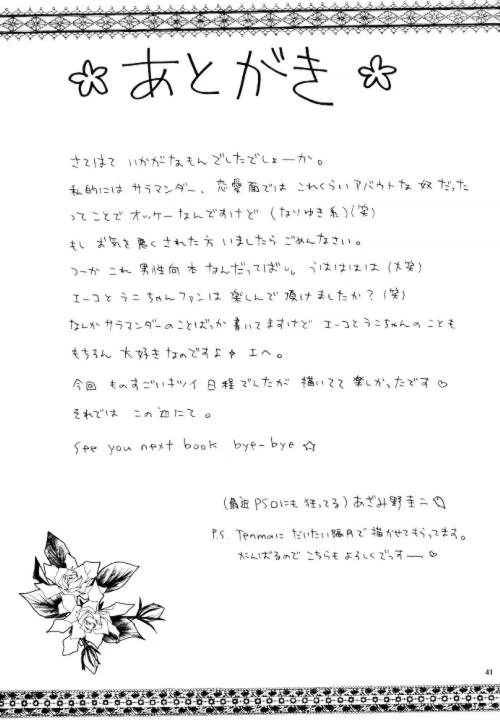 あとがき
さてはて いかがなもんでしたでしょーか。
私的には サラマンダー、恋愛面では これくらい アバウトな 奴だった
ってことで オッケーなんですけど (なりゆき系)(笑)
もし お気を悪くされた方 いましたら ごめんなさい。
つーか これ 男性向本 なんだってばし。 うはははは (大笑)
エーコとうにちゃんファンは 楽しんで頂けましたか?(笑)
なんかサラマンダーのことばっか書いてますけど エーコとうにちゃんのことも
もちろん 大好きなのですよ エへ。
今回 ものすごいキツイ日程でしたが 描いてて 楽しかったです♡
それでは この辺にて。
See you next book bye-bye ☆
(最近PSOにも狂ってる) あざみ野圭二
P.S. Tenmaに だいたい隔月で 描かせてもらってます。
がんばるので こちらも よろしくでっすー ♡
41